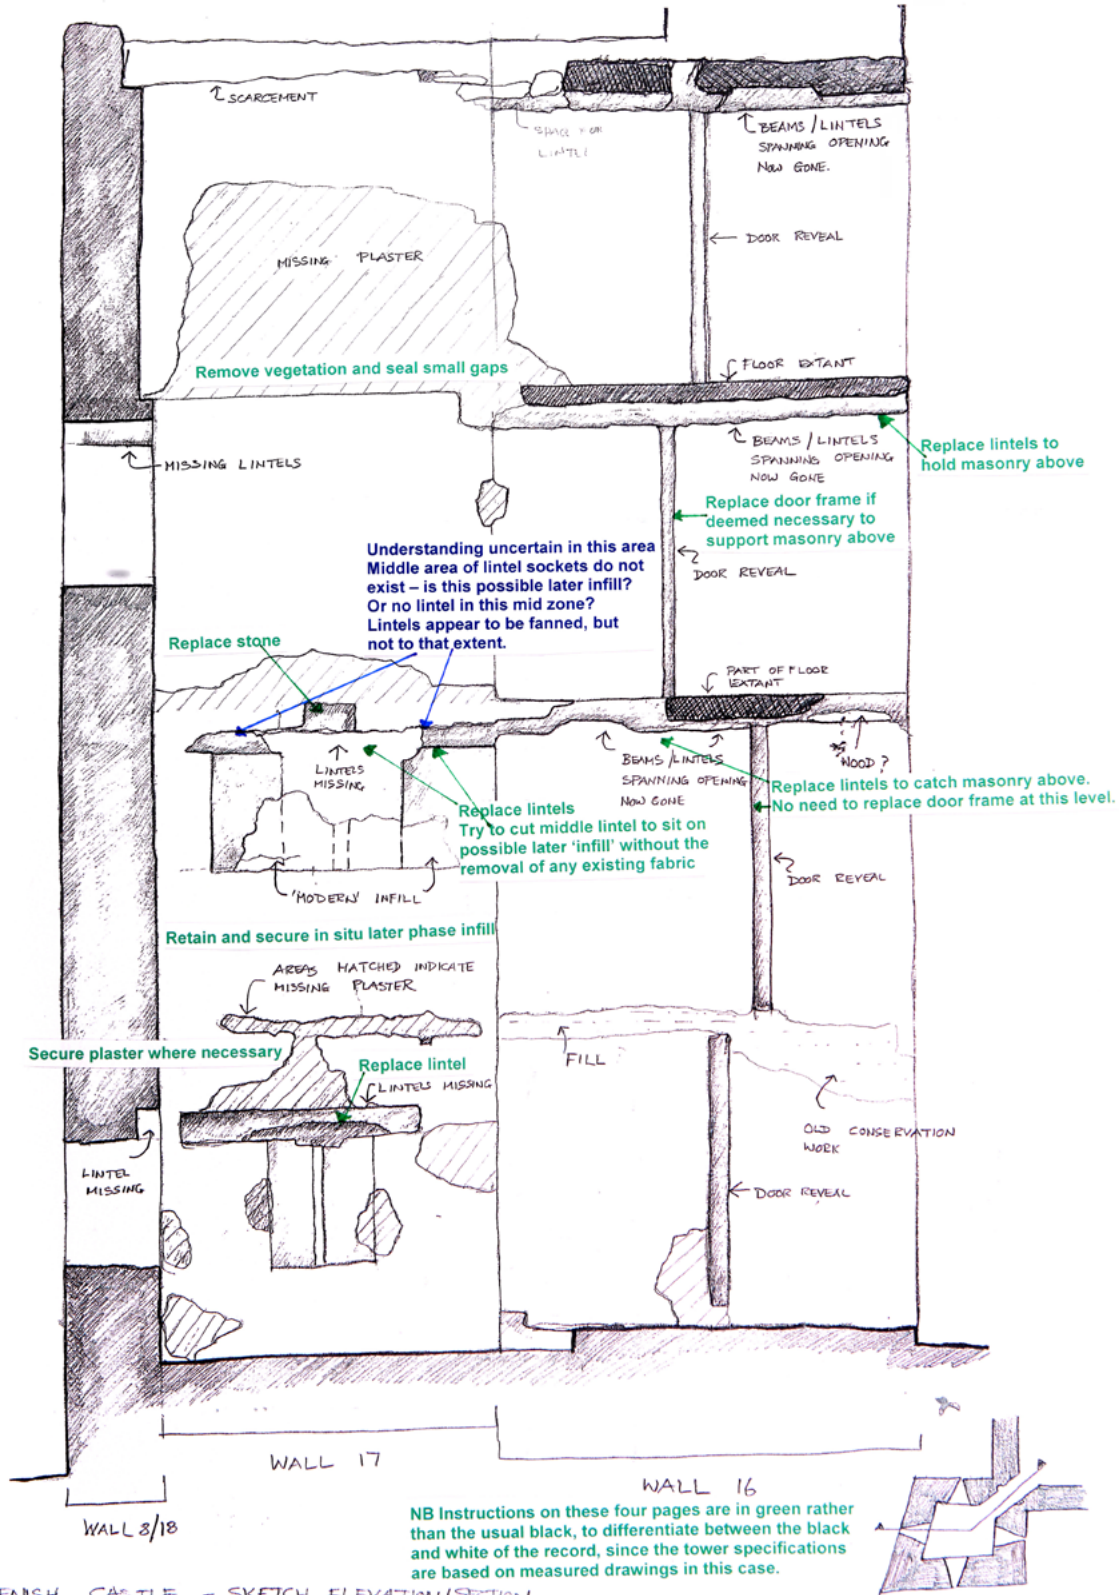 SCARCEMENT
SPACE FOR
LINTEL
BEAMS / LINTELS
SPANNING OPENING
NOW GONE.
DOOR REVEAL
MISSING PLASTER
Remove vegetation and seal small gaps
FLOOR EXTANT
MISSING LINTELS
BEAMS / LINTELS
SPANNING OPENING
NOW GONE
Replace lintels to
hold masonry above
Replace door frame if
deemed necessary to
support masonry above
DOOR REVEAL
Understanding uncertain in this area
Middle area of lintel sockets do not
exist – is this possible later infill?
Or no lintel in this mid zone?
Lintels appear to be fanned, but
not to that extent.
Replace stone
PART OF FLOOR
EXTANT
LINTELS
MISSING
BEAMS / LINTELS
SPANNING OPENING
NOW GONE
WOOD ?
Replace lintels to catch masonry above.
No need to replace door frame at this level.
Replace lintels
Try to cut middle lintel to sit on
possible later ‘infill’ without the
removal of any existing fabric
DOOR REVEAL
'MODERN' INFILL
Retain and secure in situ later phase infill
AREAS HATCHED INDICATE
MISSING PLASTER
Secure plaster where necessary
FILL
Replace lintel
LINTELS MISSING
OLD CONSERVATION
WORK
LINTEL
MISSING
DOOR REVEAL
WALL 17
WALL 16
WALL 8/18
NB Instructions on these four pages are in green rather
than the usual black, to differentiate between the black
and white of the record, since the tower specifications
are based on measured drawings in this case.
CASTLE - SKETCH ELEVATION/SECTION